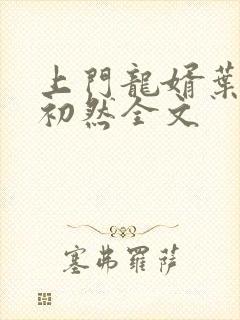 上門龍婿葉
初然全文
塞弗羅薩